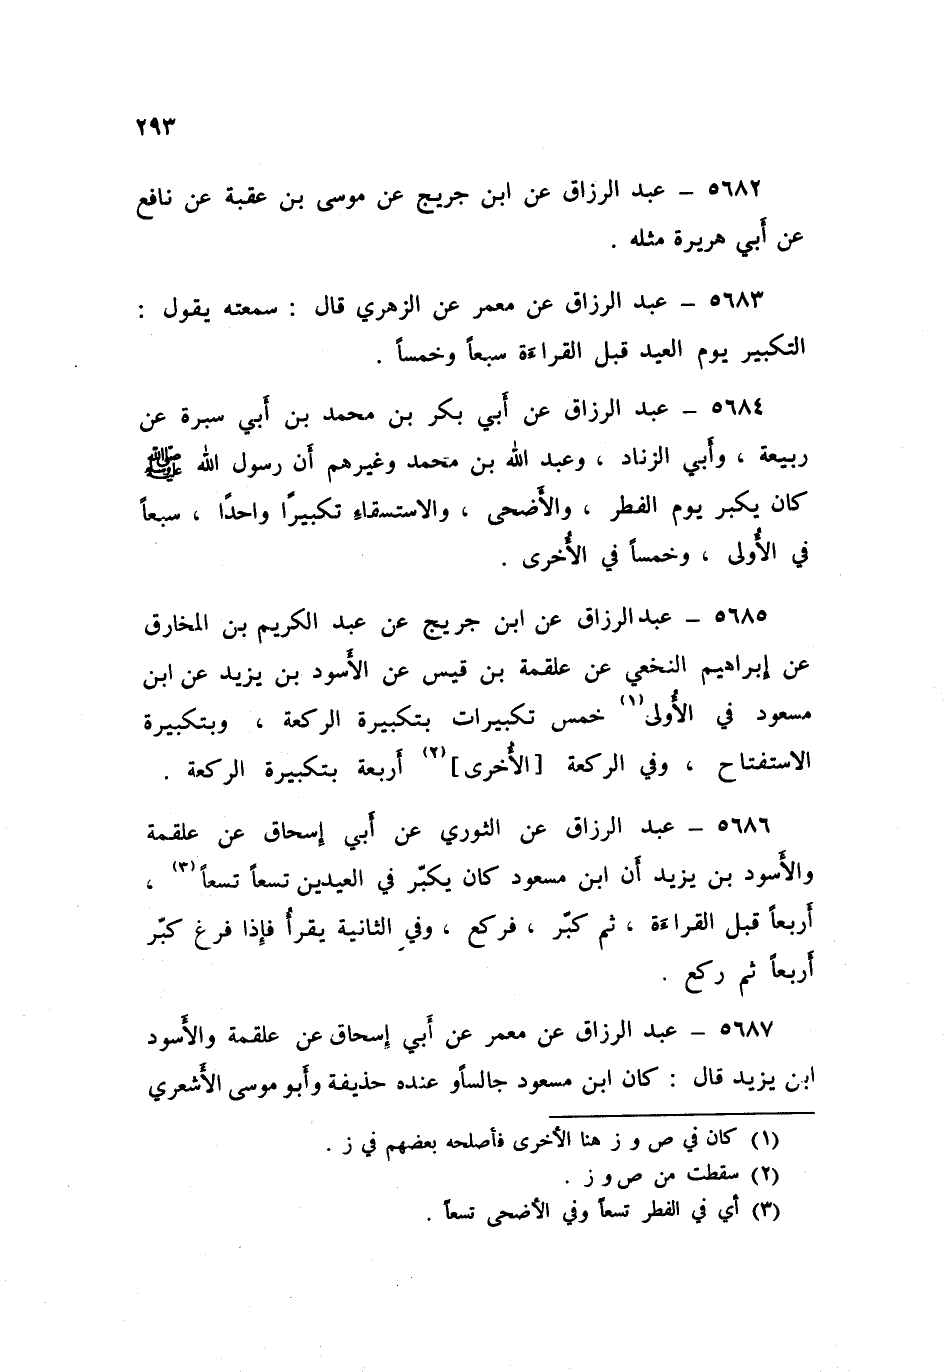 ٢٩٣
٥٦٨٢ – عبد الرزاق عن ابن جريج عن موسى بن عقبة عن نافع
عن أَبي هريرة مثله .
٥٦٨٣ – عبد الرزاق عن معمر عن الزهري قال : سمعته يقول :
التكبير يوم العيد قبل القراءَة سبعاً وخمساً .
٥٦٨٤ – عبد الرزاق عن أَبي بكر بن محمد بن أَبي سبرة عن
ربيعة ، وأَبي الزناد ، وعبد الله بن محمد وغيرهم أَن رسول الله ﷺ
كان يكبر يوم الفطر ، والأَضحى ، والاستسقاء تكبيرًا واحدًا ، سبعاً
في الأُولى ، وخمساً في الأُخرى .
٥٦٨٥ – عبد الرزاق عن ابن جريج عن عبد الكريم بن المخارق
عن إبراهيم النخعي عن علقمة بن قيس عن الأَسود بن يزيد عن ابن
مسعود في الأُولى(١) خمس تكبيرات بتكبيرة الركعة ، وبتكبيرة
الاستفتاح ، وفي الركعة [الأُخرى](٢) أَربعة بتكبيرة الركعة .
٥٦٨٦ – عبد الرزاق عن الثوري عن أَبي إسحاق عن علقمة
والأَسود بن يزيد أَن ابن مسعود كان يكبّر في العيدين تسعاً تسعاً(٣) ،
أَربعاً قبل القراءَة ، ثم كبّر ، فركع ، وفي الثانية يقرأُ فإذا فرغ كبّر
أَربعاً ثم ركع .
٥٦٨٧ – عبد الرزاق عن معمر عن أَبي إسحاق عن علقمة والأَسود
ابن يزيد قال : كان ابن مسعود جالساً و عنده حذيفة وأَبو موسى الأَشعري
(١) كان في ص و ز هنا الأخرى فأصلحه بعضهم في ز .
(٢) سقطت من ص و ز .
(٣) أي في الفطر تسعاً وفي الأضحى تسعاً .